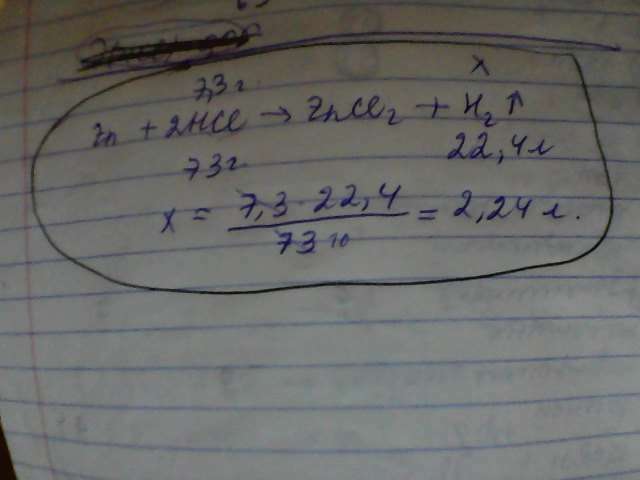 7,3 г. x
Zn + 2HCl → ZnCl₂ + H₂↑
73 г 22,4 л
x = 7,3 · 22,4 / 73 10 = 2,24 л.